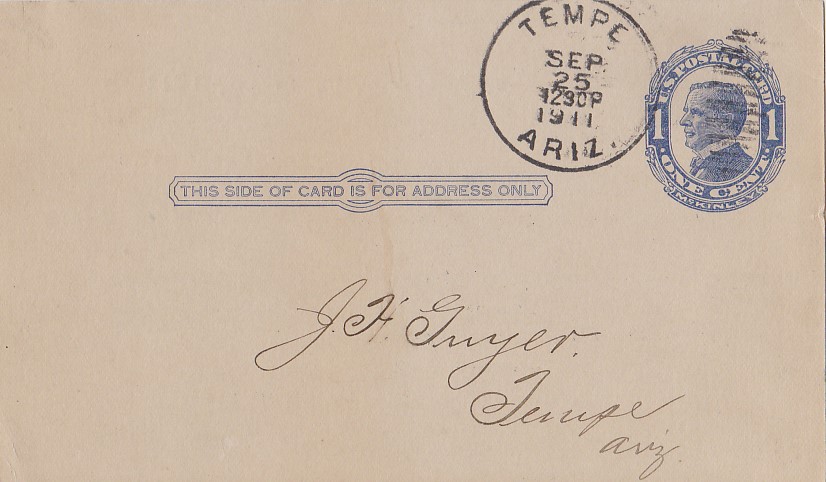 TEMPE
SEP
25
1230P
1911
ARIZ.
U.S. POSTAL CARD
1 1
ONE CENT
McKINLEY
THIS SIDE OF CARD IS FOR ADDRESS ONLY
J. F. Guyer.
Tempe
Ariz.